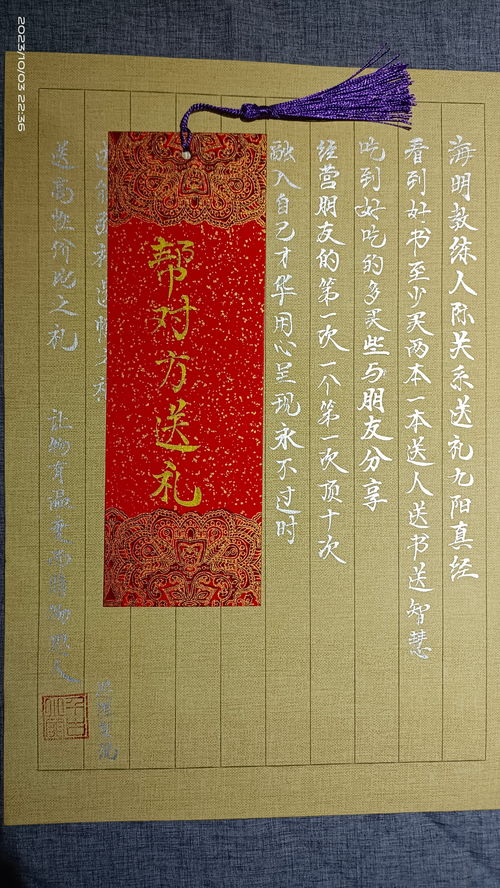 海明教练人际关系送礼九阳真经
看到好书至少买两本一本送人送书送智慧
吃到好吃的多买些与朋友分享
经营朋友的第一次一个第一次顶十次
融入自己才华用心呈现永不过时
帮对方送礼
送高性价比之礼 让物有温度
2023/10/03 22:36